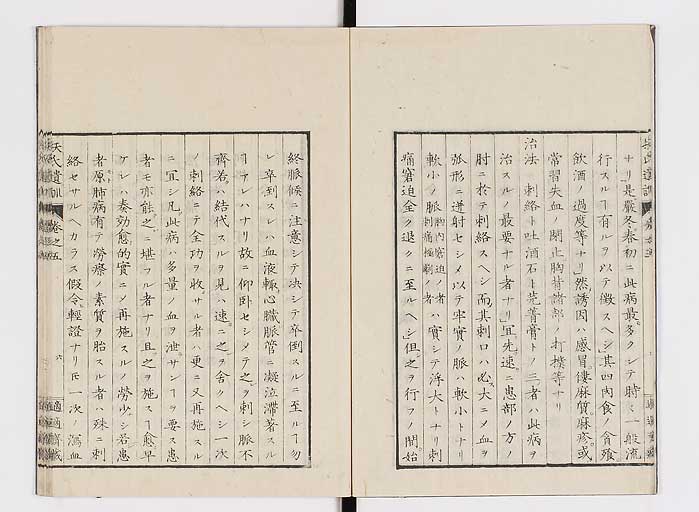 ナリ」是嚴冬春初ニ此病最多クシテ時トシテ一般流
行スルヿ有ルヲ以テ徴スヘシ」其四肉食ノ貪飱
飲酒ノ過度等ナリ」然ルニ誘因ハ感冒僂麻質麻疹或
常習失血ノ閉止胸背諸部ノ打撲等ナリ
治法 刺絡ト吐酒石ト芫菁膏トノ三者ハ此病ヲ
治スルノ最要ナル者ナリ」宜先速ニ患部ノ方ノ
肘ニ於テ刺絡スヘシ而其刺口ハ必大ニメ血ヲ
弧形ニ迸射セシメ以テ牢實ノ脈ハ軟小トナリ
軟小ノ脈胸内窘迫ノ者刺痛極劇ノ者ハ實シテ浮大トナリ刺
痛窘迫全ク退クニ至ルヘシ但之ヲ行フノ開始
終脈候ニ注意シテ決シテ卒倒スルニ至ルヿ勿
レ卒倒スレハ血液輙心臓脈管ニ凝泣滯著スル
ヿアレハナリ故ニ仰卧セシメテ之ヲ刺シ脈不
齊若ハ結代スルヲ見ハ速ニ之ヲ舎クヘシ一次
ノ刺絡ニテ全功ヲ收サル者ハ更ニ又再施スル
ニ宜シ凡此病ハ多量ノ血ヲ泄サンヿヲ要ス患
者モ亦能之ニ堪フル者ナリ且之ヲ施スヿ愈早
ケレハ奏効愈的實ニメ再施スルノ勞少シ若患
者原肺病有テ勞療ノ素質ヲ胎スル者ハ殊ニ刺
絡セサルヘカラス假令輕證ナリ𪜈一次ノ瀉血
扶氏遺訓 卷之五 六 適適齋藏